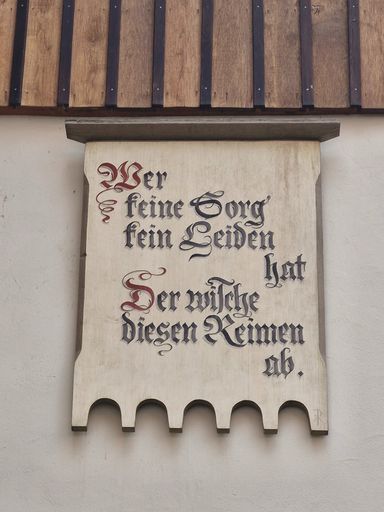 Wer
keine Sorg'
kein Leiden
hat
Der wische
diesen Reimen
ab.